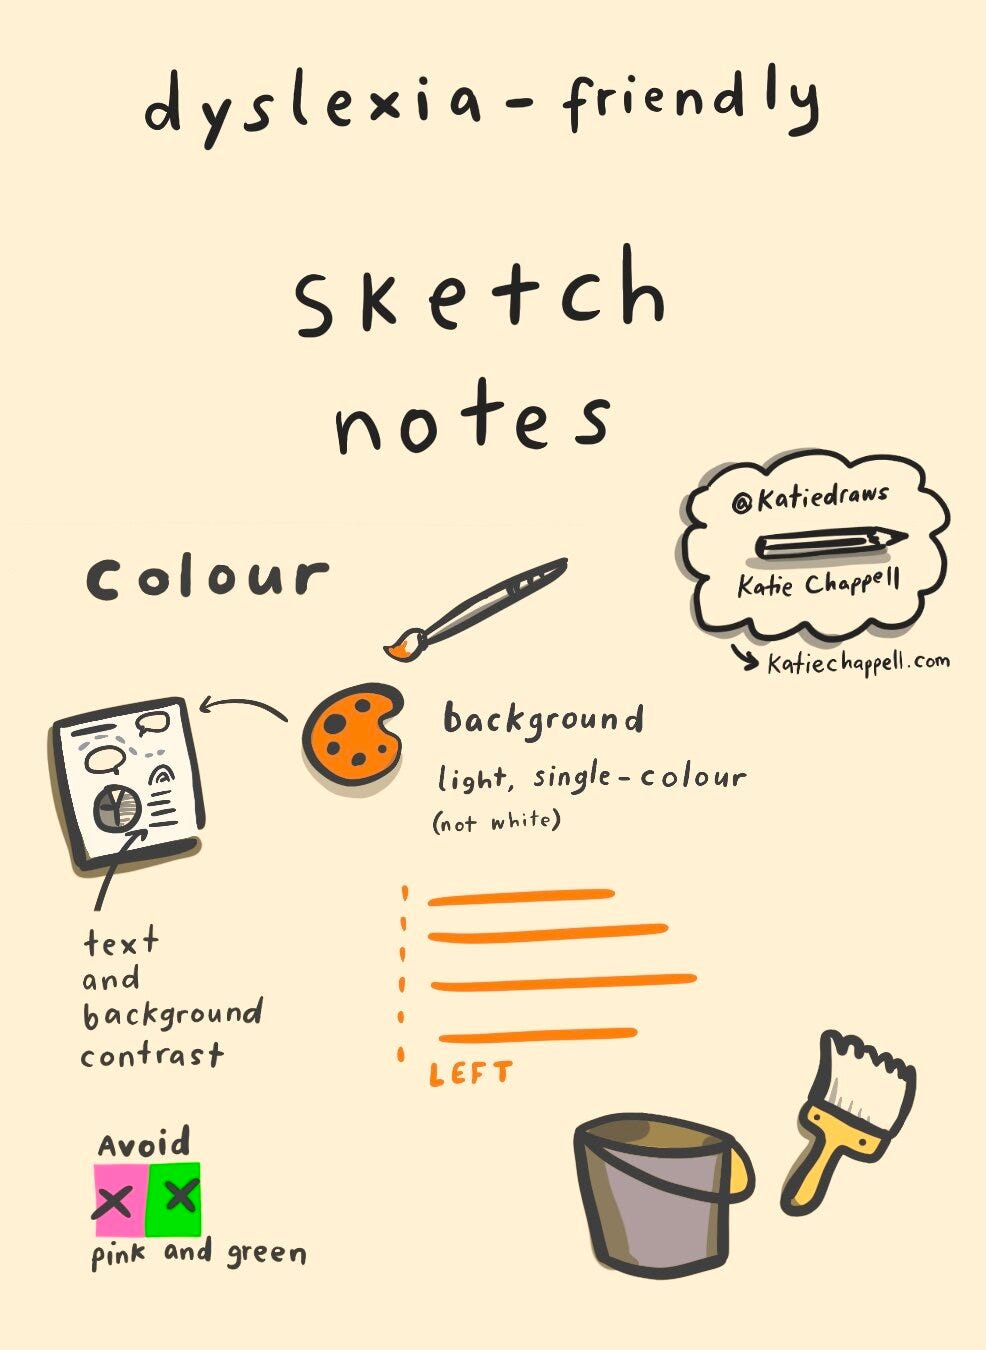 dyslexia-friendly
sketch
notes
@Katiedraws
Katie Chappell
Katiechappell.com
colour
background
light, single-colour
(not white)
text
and
background
contrast
LEFT
Avoid
pink and green